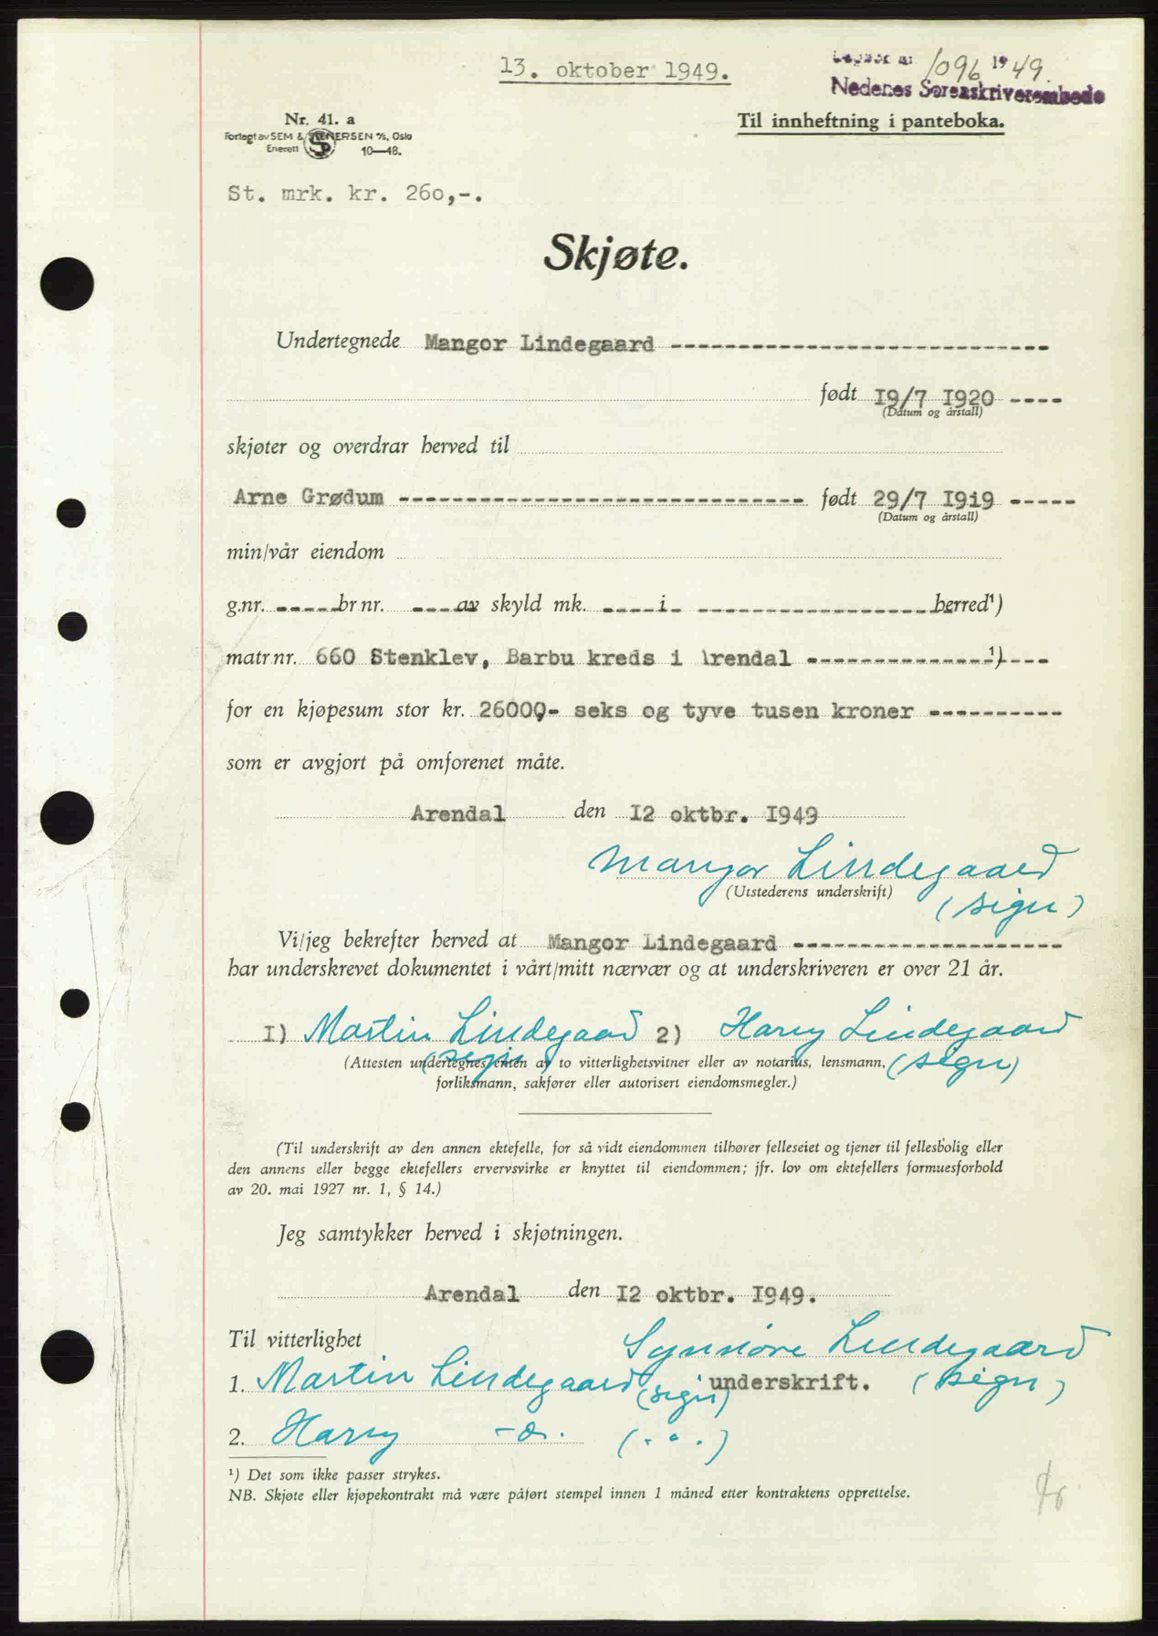 13. oktober 1949.
Dagbok nr 1096 1949.
Nedenes Sorenskriverembede
Nr. 41. a
Til innheftning i panteboka.
Forlagt av SEM & STENERSEN A/S, Oslo
Enerett SP 10—48.
St. mrk. kr. 260,-.
Skjøte.
Undertegnede Mangor Lindegaard ----------------------------
født 19/7 1920 ----
(Datum og årstall)
skjøter og overdrar herved til
Arne Grødum ------------------------------ født 29/7 1919 -----
(Datum og årstall)
min/vår eiendom
g.nr. ----- br.nr. ---- av skyld mk. ---- i - ------------------ herred¹)
matr.nr. 660 Stenklev, Barbu kreds i Arendal --------------¹)----
for en kjøpesum stor kr. 26000,- seks og tyve tusen kroner ----------
som er avgjort på omforenet måte.
Arendal den 12 oktbr. 1949
Mangor Lindegaard
(Utstederens underskrift)
(sign)
Vi/jeg bekrefter herved at Mangor Lindegaard --------------------
har underskrevet dokumentet i vårt/mitt nærvær og at underskriveren er over 21 år.
1) Martin Lindegaard 2) Harry Lindegaard
(sign) (sign)
(Attesten undertegnes enten av to vitterlighetsvitner eller av notarius, lensmann,
forliksmann, sakfører eller autorisert eiendomsmegler.)
(Til underskrift av den annen ektefelle, for så vidt eiendommen tilhører felleseiet og tjener til fellesbolig eller
den annens eller begge ektefellers ervervsvirke er knyttet til eiendommen; jfr. lov om ektefellers formuesforhold
av 20. mai 1927 nr. 1, § 14.)
Jeg samtykker herved i skjøtningen.
Arendal den 12 oktbr. 1949.
Til vitterlighet Synnøve Lindegaard
1. Martin Lindegaard (sign) underskrift. (sign)
2. Harry -"-. (. " .)
¹) Det som ikke passer strykes.
NB. Skjøte eller kjøpekontrakt må være påført stempel innen 1 måned etter kontraktens opprettelse.